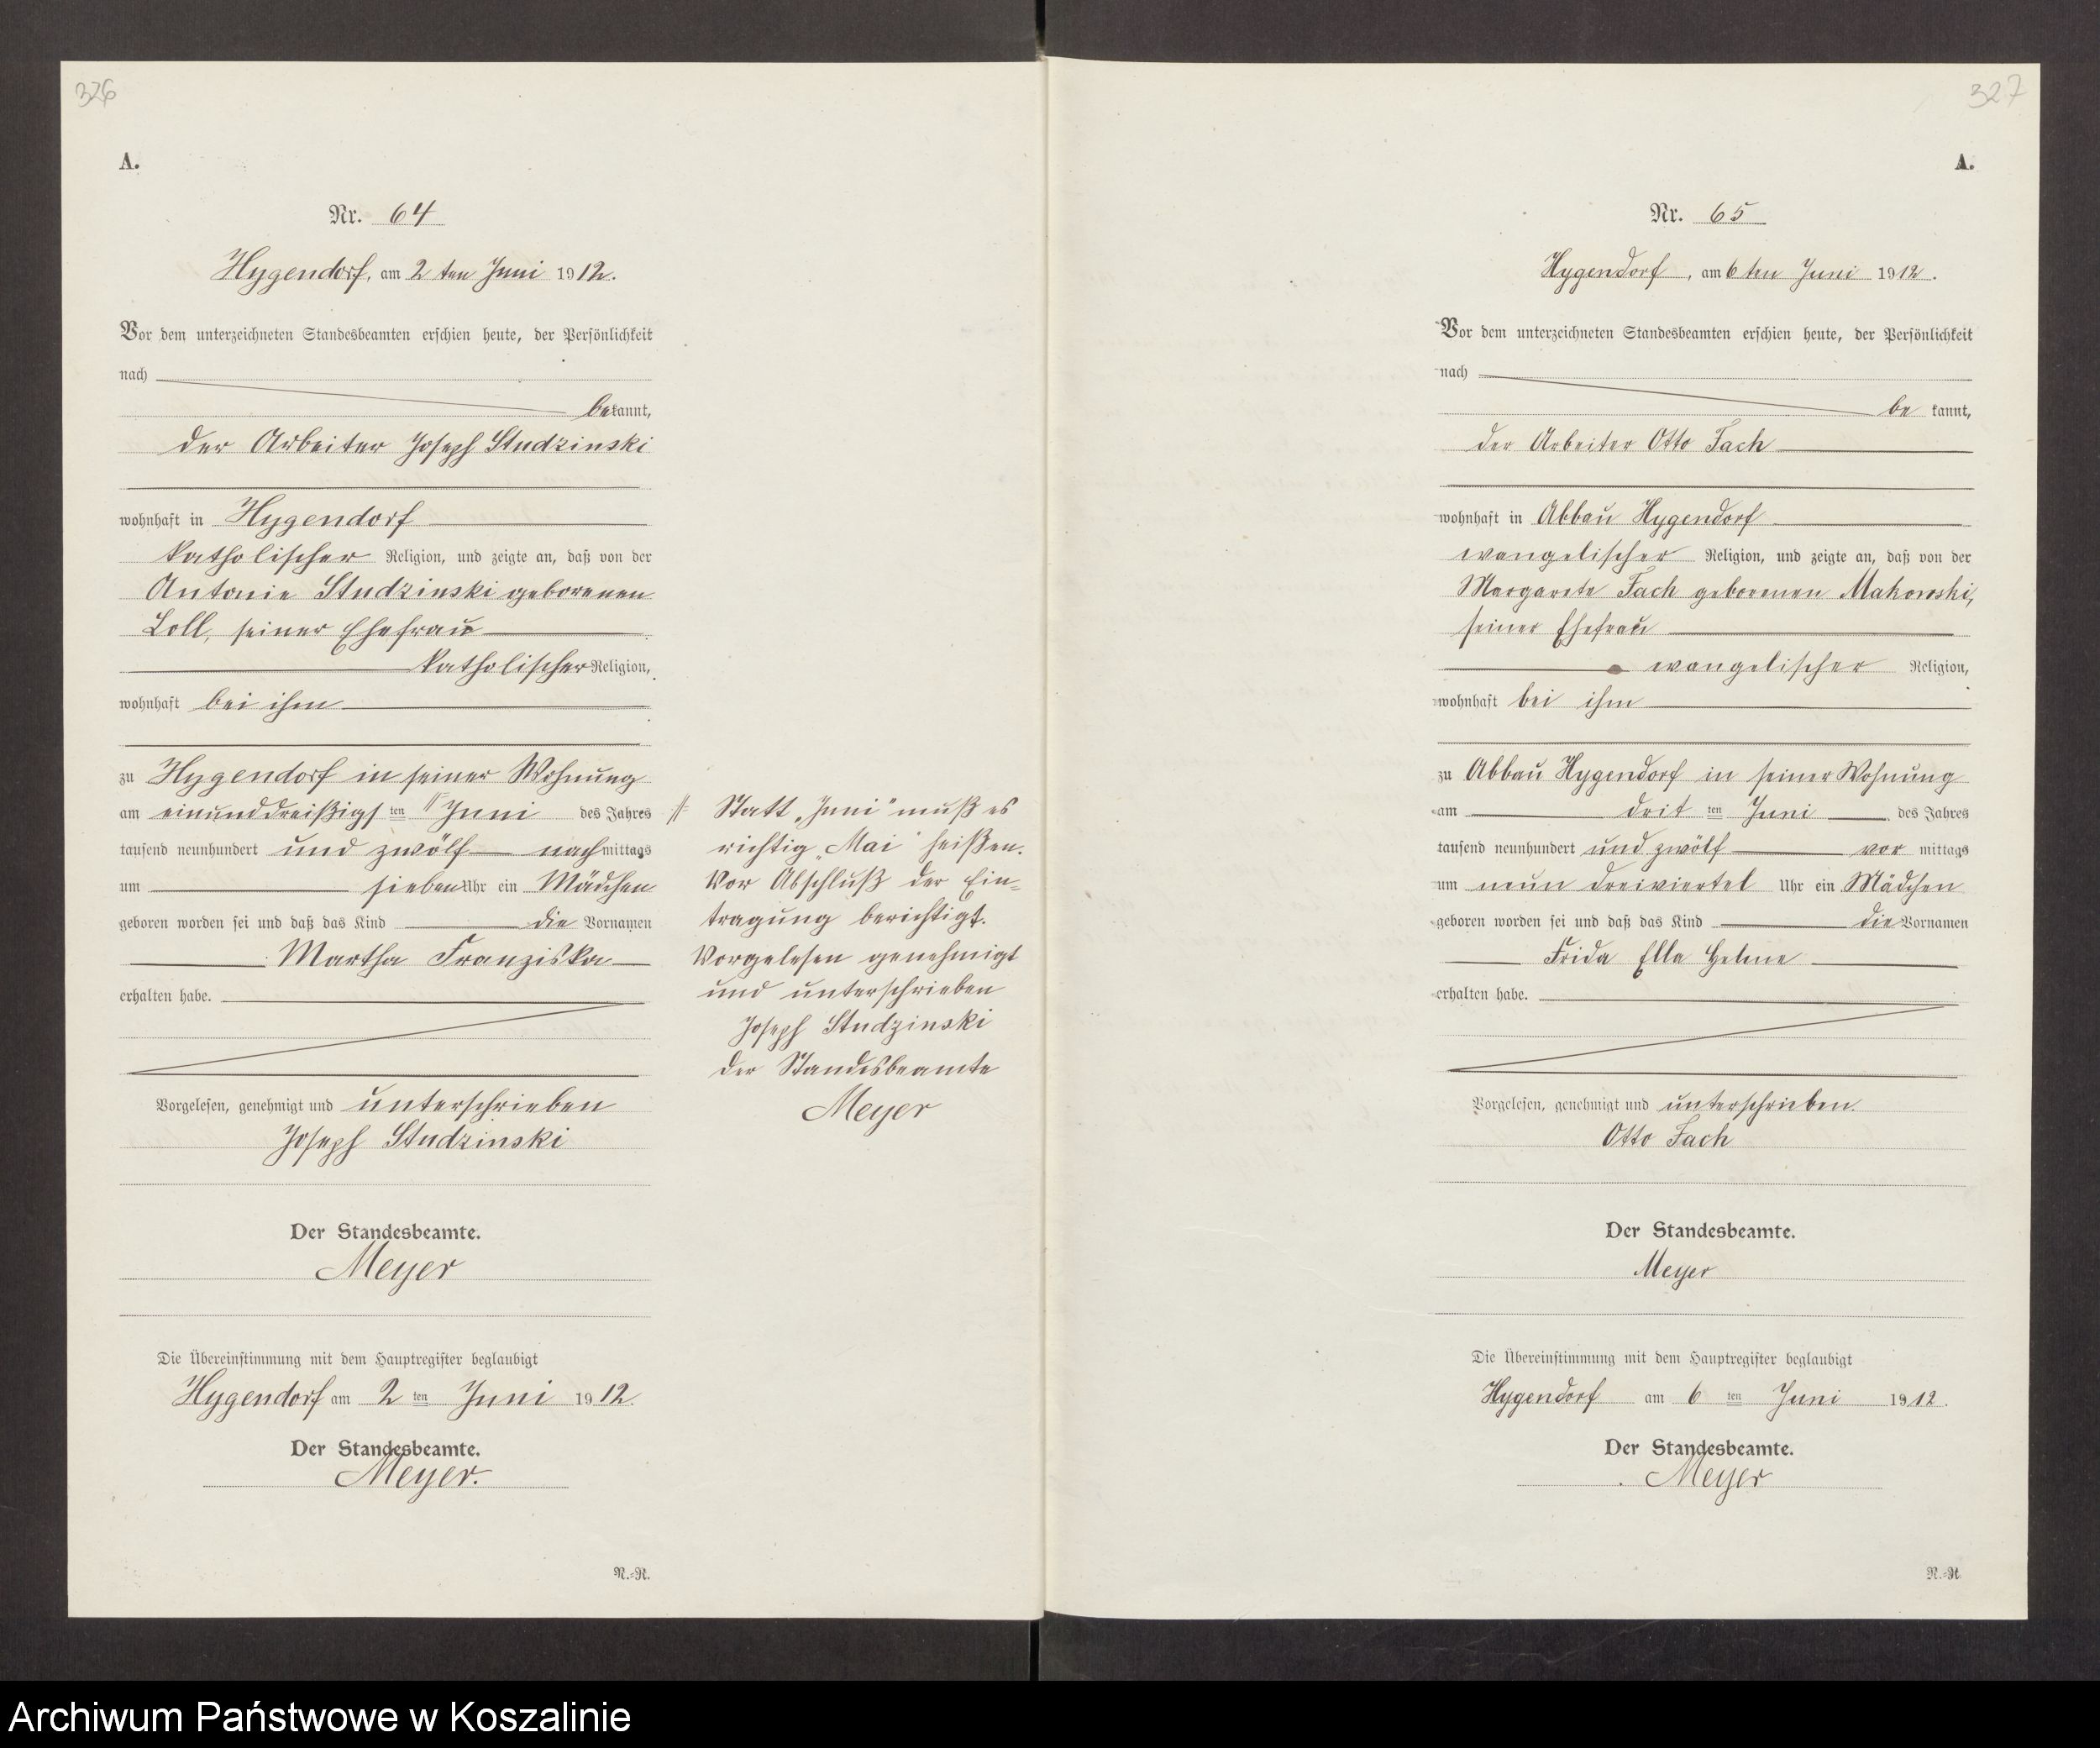 326
A.
Nr. 64
Hygendorf, am 2 ten Juni 1912.
Vor dem unterzeichneten Standesbeamten erschien heute, der Persönlichkeit
nach
bekannt,
der Arbeiter Joseph Studzinski
wohnhaft in Hygendorf
katholischer Religion, und zeigte an, daß von der
Antonie Studzinski geborenen
Loll, seiner Ehefrau
katholischer Religion,
wohnhaft bei ihm
zu Hygendorf in seiner Wohnung
am einunddreißigsten Juni des Jahres
tausend neunhundert und zwölf nachmittags
um sieben Uhr ein Mädchen
geboren worden sei und daß das Kind die Vornamen
Martha Franziska
erhalten habe.
Vorgelesen, genehmigt und unterschrieben
Joseph Studzinski
Der Standesbeamte.
Meyer
Die Übereinstimmung mit dem Hauptregister beglaubigt
Hygendorf am 2 ten Juni 1912.
Der Standesbeamte.
Meyer.
N.=R.
Statt „Juni" muß es
richtig „Mai" heißen.
Vor Abschluß der Ein=
tragung berichtigt.
Vorgelesen genehmigt
und unterschrieben
Joseph Studzinski
der Standesbeamte
Meyer
327
A.
Nr. 65
Hygendorf, am 6 ten Juni 1912.
Vor dem unterzeichneten Standesbeamten erschien heute, der Persönlichkeit
nach
be kannt,
der Arbeiter Otto Fach
wohnhaft in Abbau Hygendorf
evangelischer Religion, und zeigte an, daß von der
Margarete Fach geborenen Makowski,
seiner Ehefrau
evangelischer Religion,
wohnhaft bei ihm
zu Abbau Hygendorf in seiner Wohnung
am drit ten Juni des Jahres
tausend neunhundert und zwölf vor mittags
um neun dreiviertel Uhr ein Mädchen
geboren worden sei und daß das Kind die Vornamen
Frida Ella Helene
erhalten habe.
Vorgelesen, genehmigt und unterschrieben.
Otto Fach
Der Standesbeamte.
Meyer
Die Übereinstimmung mit dem Hauptregister beglaubigt
Hygendorf am 6 ten Juni 1912.
Der Standesbeamte.
Meyer
N.=R.
Archiwum Państwowe w Koszalinie